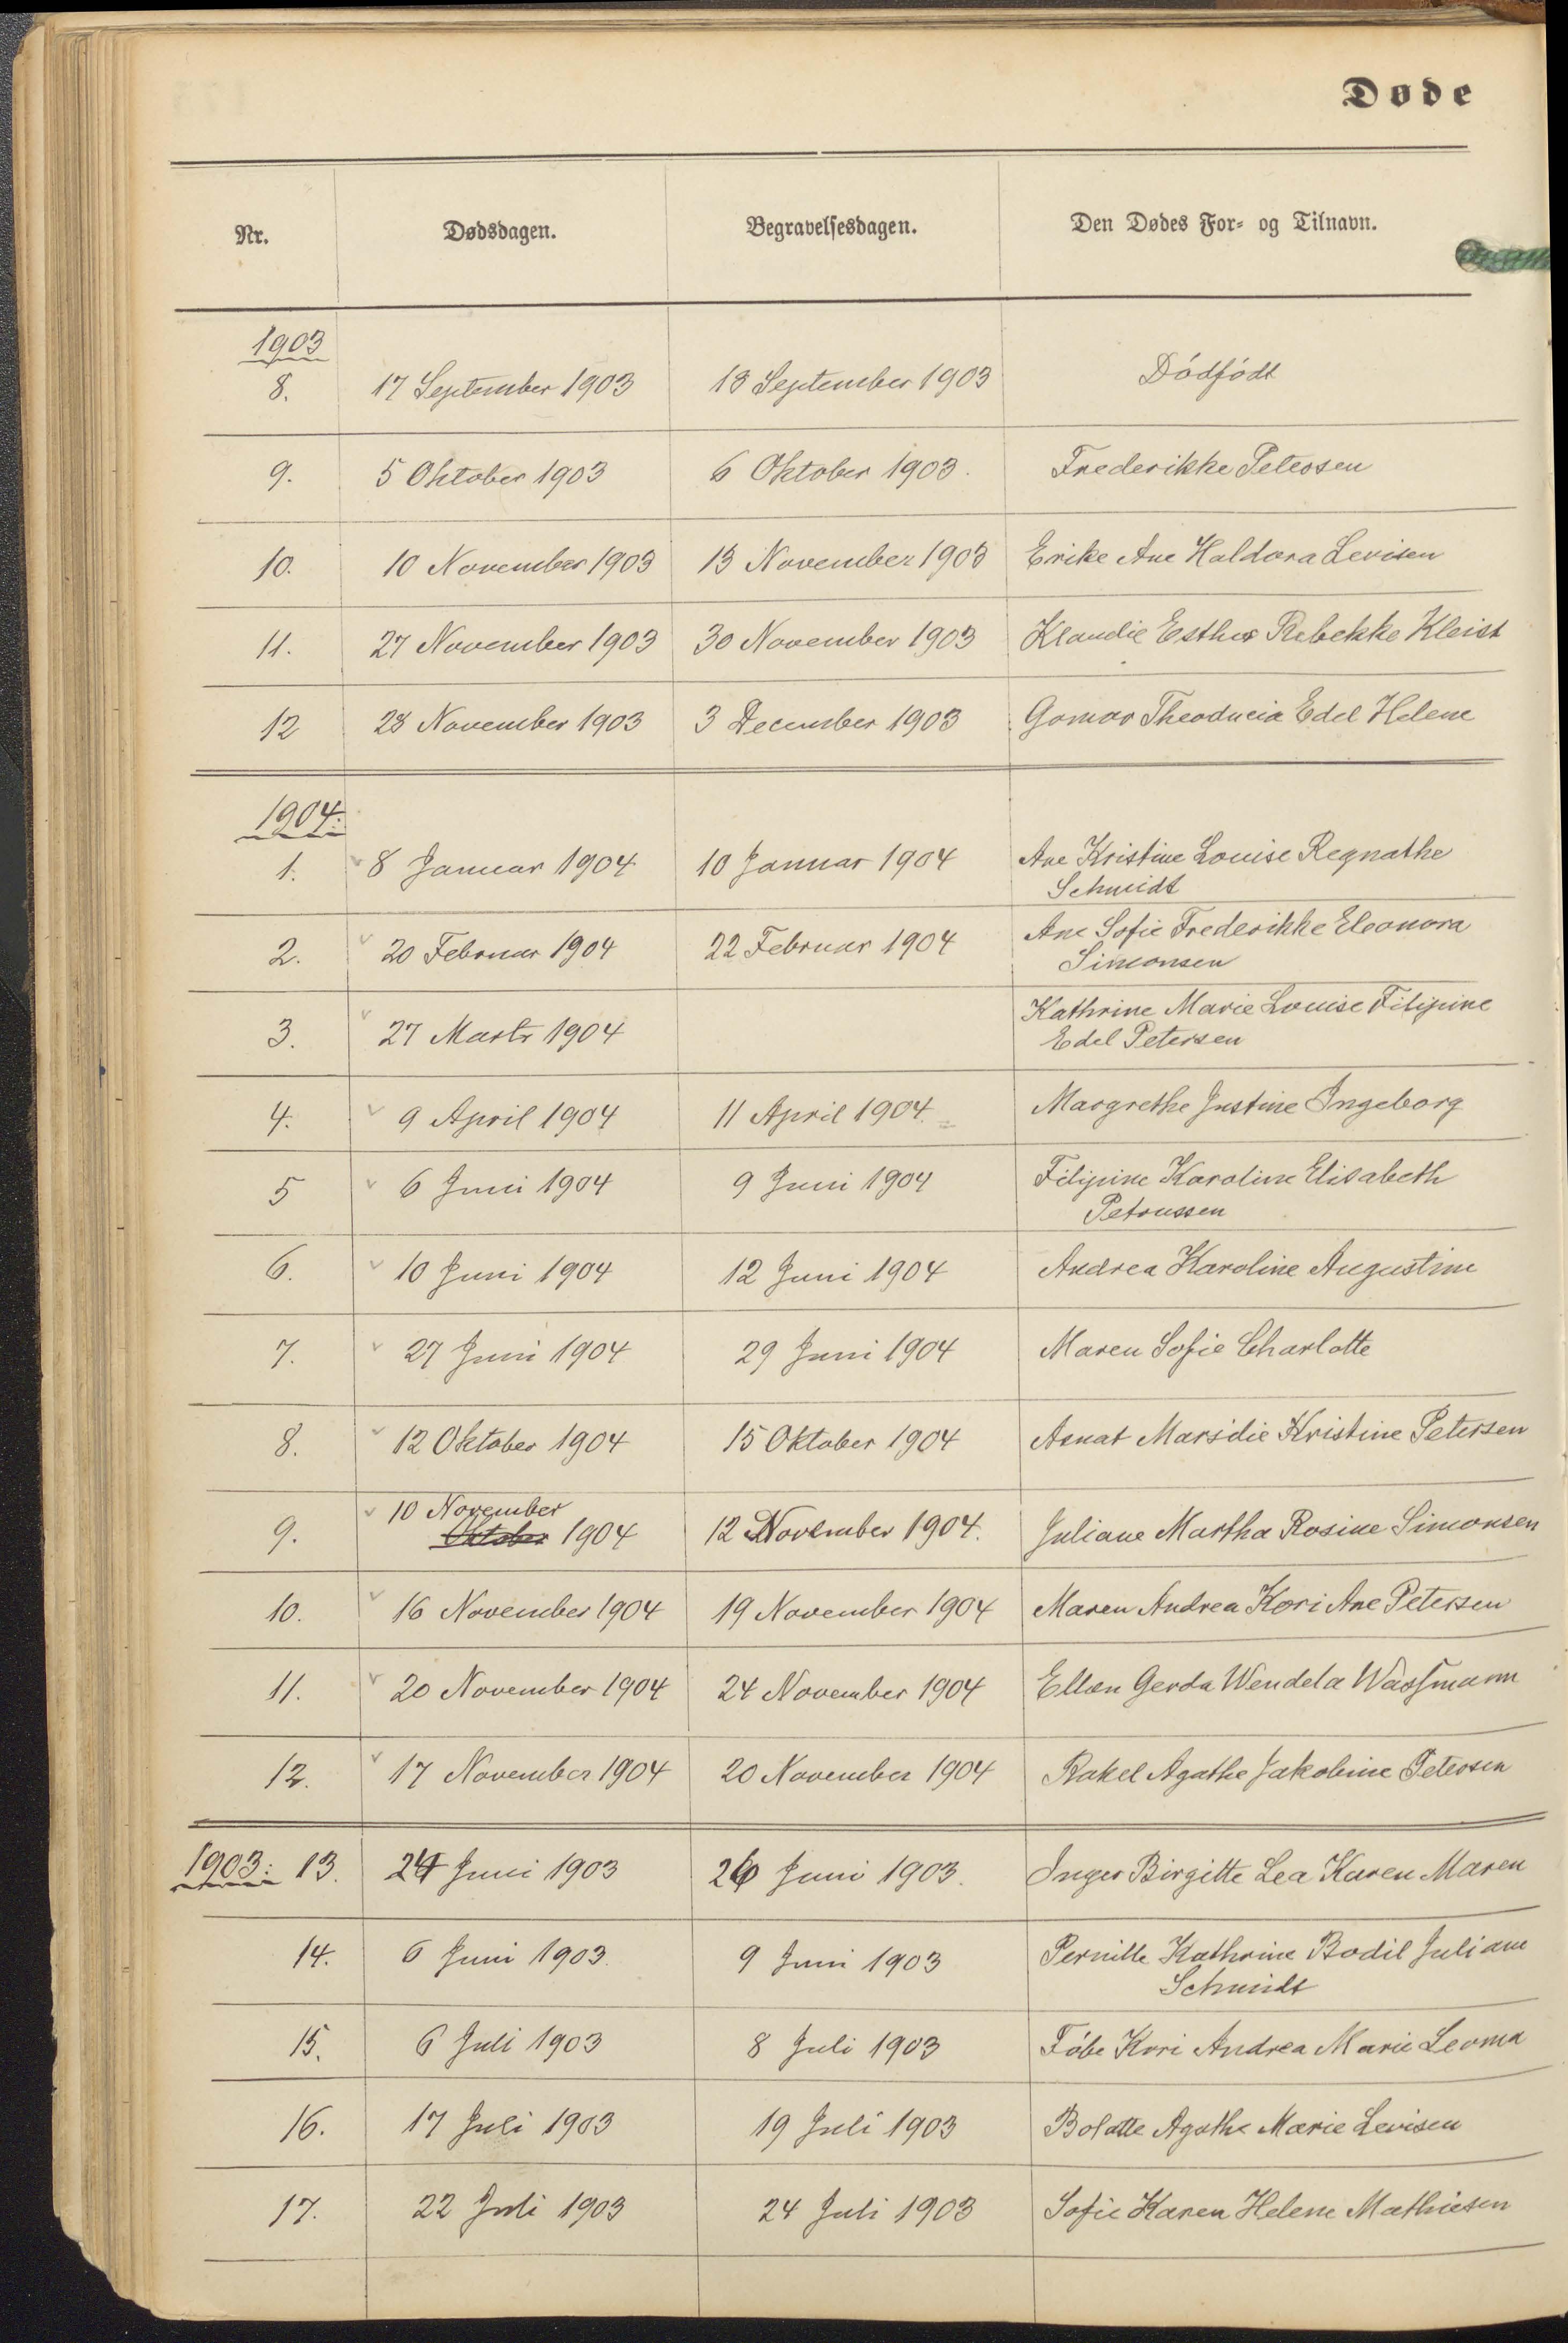 Døde
Nr. Dødsdagen. Begravelsesdagen. Den Dødes For- og Tilnavn.
1903
8. 17 September 1903 18 September 1903 Dódfódt
9. 5 Oktober 1903 6 Oktober 1903. Frederikke Petersen
10. 10 November 1903 13 November 1903 Erike Ane Haldora Levisen
11. 27 November 1903 30 November 1903 Klaudie Esther Rebekke Kleist
12 28 November 1903 3 December 1903 Gomar Theoducia Edel Helene
1904:
1. 8 Januar 1904 10 Januar 1904 Ane Kristine Louise Regnathe
Schmidt
2. 20 Februar 1904 22 Februar 1904 Ane Sofie Frederikke Eleonora
Simonsen
3. 27 Marts 1904 Kathrine Marie Louise Filipine
Edel Petersen
4. 9 April 1904 11 April 1904. Margrethe Justine Ingeborg
5 6 Juni 1904 9 Juni 1904 Filipine Karoline Elisabeth
Petrussen
6. 10 Juni 1904 12 Juni 1904 Andrea Karoline Augustine
7. 27 Juni 1904 29 Juni 1904 Maren Sofie Charlotte
8. 12 Oktober 1904 15 Oktober 1904 Asnat Marsidie Kristine Petersen
9. 10 November
Oktober 1904 12 November 1904. Juliane Martha Rosine Simonsen
10. 16 November 1904 19 November 1904 Maren Andrea Kori Ane Petersen
11. 20 November 1904 24 November 1904 Ellen Gerda Wendela Wassmann
12. 17 November 1904 20 November 1904 Rakel Agathe Jakobine Petersen
1903: 13. 24 Juni 1903 26 Juni 1903. Inger Birgitte Lea Karen Maren
14. 6 Juni 1903. 9 Juni 1903 Pernille Kathrine Bodil Juliane
Schmidt
15. 6 Juli 1903 8 Juli 1903 Fóbe Kori Andrea Marie Leoma
16. 17 Juli 1903 19 Juli 1903 Bolatte Agathe Marie Levisen
17. 22 Juli 1903 24 Juli 1903 Sofie Karen Helene Mathiesen